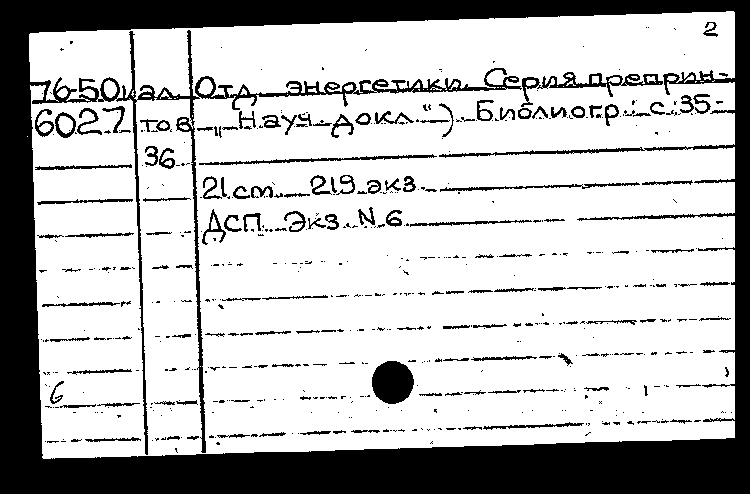 2
76-50 иал. Отд. энергетики. Серия преприн-
6027 тов „Науч. докл.“). Библиогр.: с. 35-
36
21 см 219 экз.
ДСП Экз. N 6
6